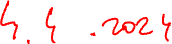 4. 4 .2024